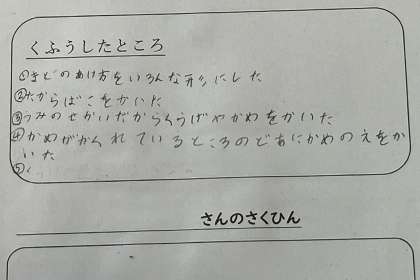 くふうしたところ
①まどのあけ方をいろんな形にした
②たからばこをかいた
③うみのせかいだからくらげやかめをかいた
④かめがかくれているところのどあにかめのえをか
いた
⑤
さんのさくひん